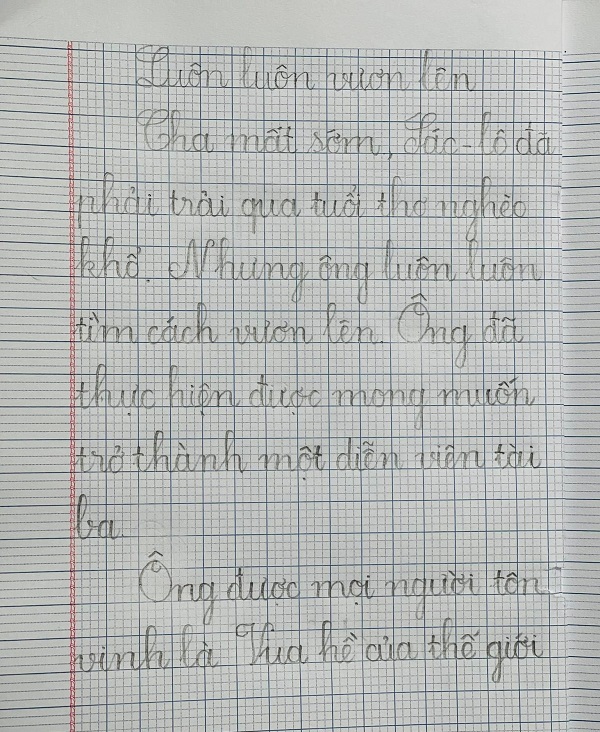 Luôn luôn vươn lên
Cha mất sớm, Sác-lô đã
phải trải qua tuổi thơ nghèo
khổ. Nhưng ông luôn luôn
tìm cách vươn lên. Ông đã
thực hiện được mong muốn
trở thành một diễn viên tài
ba.
Ông được mọi người tôn
vinh là Vua hề của thế giới